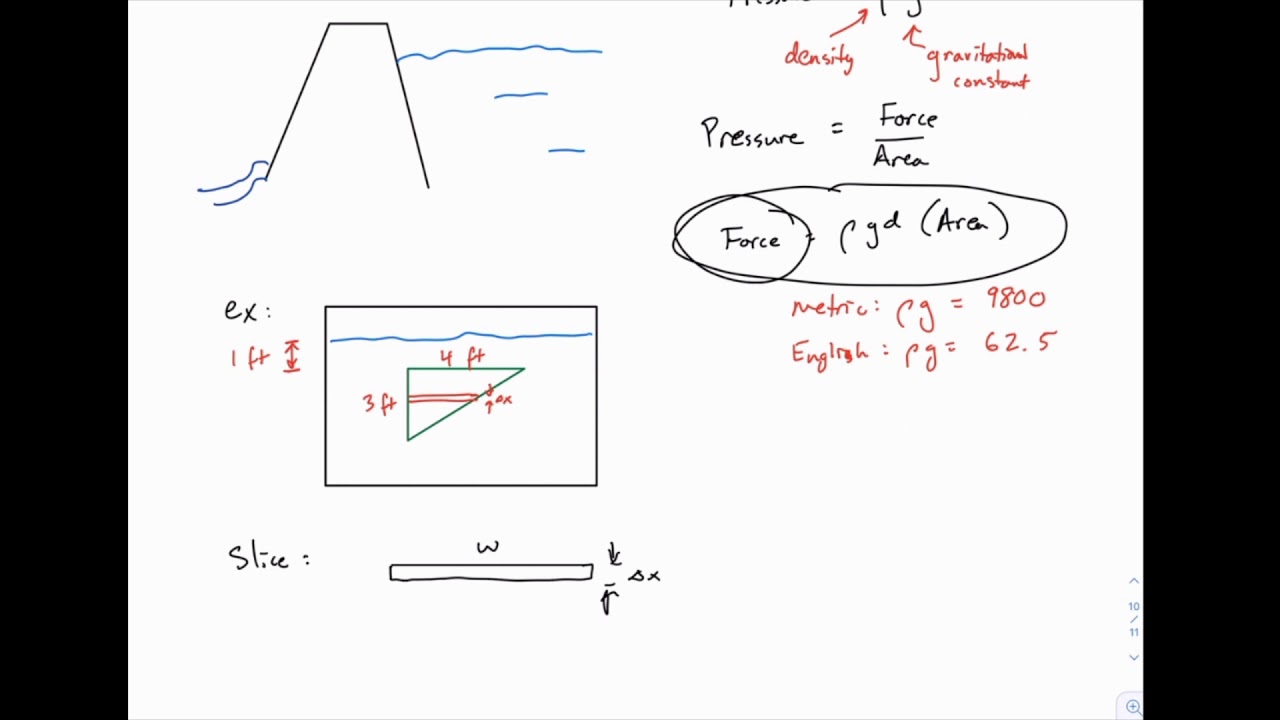 ρg
density
gravitational
constant
Pressure = Force
Area
Force = ρgd (Area)
metric: ρg = 9800
English: ρg = 62.5
ex:
1 ft
4 ft
3 ft
Δx
Slice:
w
Δx
10
/
11